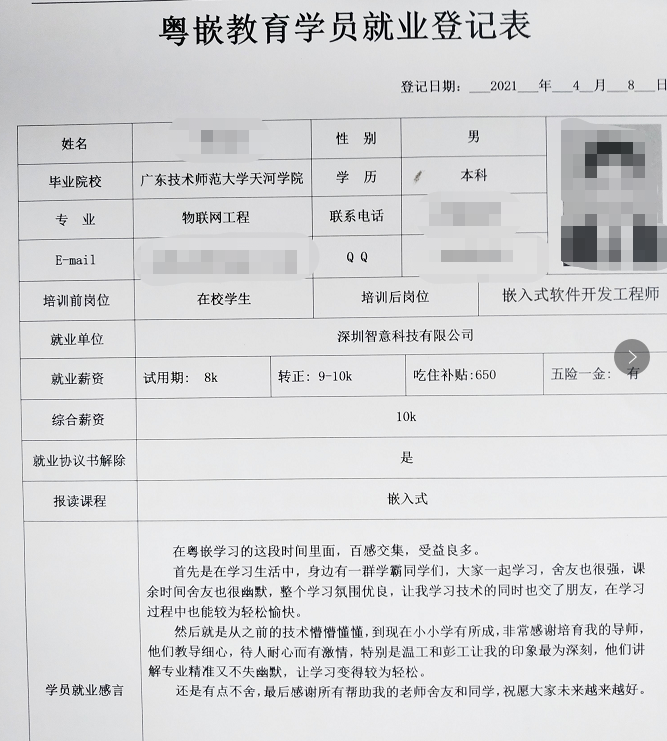 粤嵌教育学员就业登记表
登记日期：2021年4月8日
姓名 性 别 男
毕业院校 广东技术师范大学天河学院 学 历 本科
专 业 物联网工程 联系电话
E-mail Q Q
培训前岗位 在校学生 培训后岗位 嵌入式软件开发工程师
就业单位 深圳智意科技有限公司
就业薪资 试用期: 8k 转正: 9-10k 吃住补贴:650 五险一金: 有
综合薪资 10k
就业协议书解除 是
报读课程 嵌入式
在粤嵌学习的这段时间里面，百感交集，受益良多。
首先是在学习生活中，身边有一群学霸同学们，大家一起学习，舍友也很强，课
余时间舍友也很幽默，整个学习氛围优良，让我学习技术的同时也交了朋友，在学习
过程中也能较为轻松愉快。
然后就是从之前的技术懵懵懂懂，到现在小小学有所成，非常感谢培育我的导师，
他们教导细心，待人耐心而有激情，特别是温工和彭工让我的印象最为深刻，他们讲
解专业精准又不失幽默，让学习变得较为轻松。
学员就业感言 还是有点不舍，最后感谢所有帮助我的老师舍友和同学，祝愿大家未来越来越好。